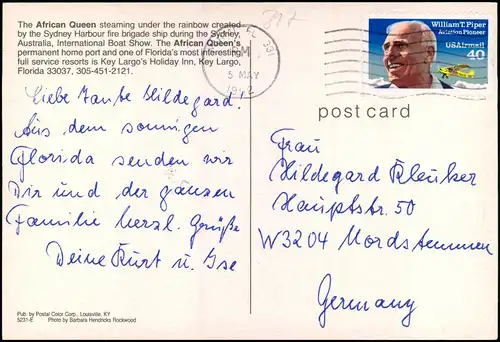 The African Queen steaming under the rainbow created
by the Sydney Harbour fire brigade ship during the Sydney,
Australia, International Boat Show. The African Queen's
permanent home port and one of Florida's most interesting
full service resorts is Key Largo's Holiday Inn, Key Largo,
Florida 33037, 305-451-2121.
FL 331
PM
5 MAY
1992
William T. Piper
Aviation Pioneer
USAirmail
40
post card
Liebe Tante Hildegard!
Aus dem sonnigen
Florida senden wir
Dir und der ganzen
Familie herzl. Grüße
Deine Kurt u. Ise
Frau
Hildegard Kleuker
Hauptstr. 50
W3204 Nordstemmen
Germany
Pub by Postal Color Corp., Louisville, KY
5231-E Photo by Barbara Hendricks Rockwood